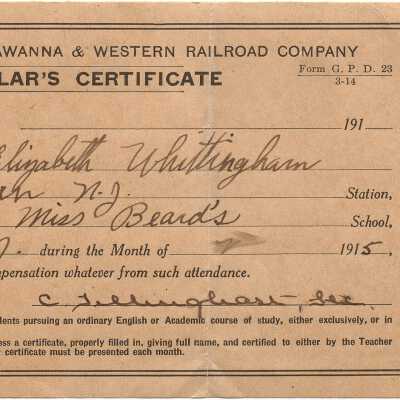 AWANNA & WESTERN RAILROAD COMPANY
LAR'S CERTIFICATE
Form G. P. D. 23
3-14
191
Elizabeth Whittingham
N.J. Station,
Miss Beard's School,
J. during the Month of 1915,
pensation whatever from such attendance.
C. Tillinghast, Sec.
dents pursuing an ordinary English or Academic course of study, either exclusively, or in
ess a certificate, properly filled in, giving full name, and certified to either by the Teacher
certificate must be presented each month.